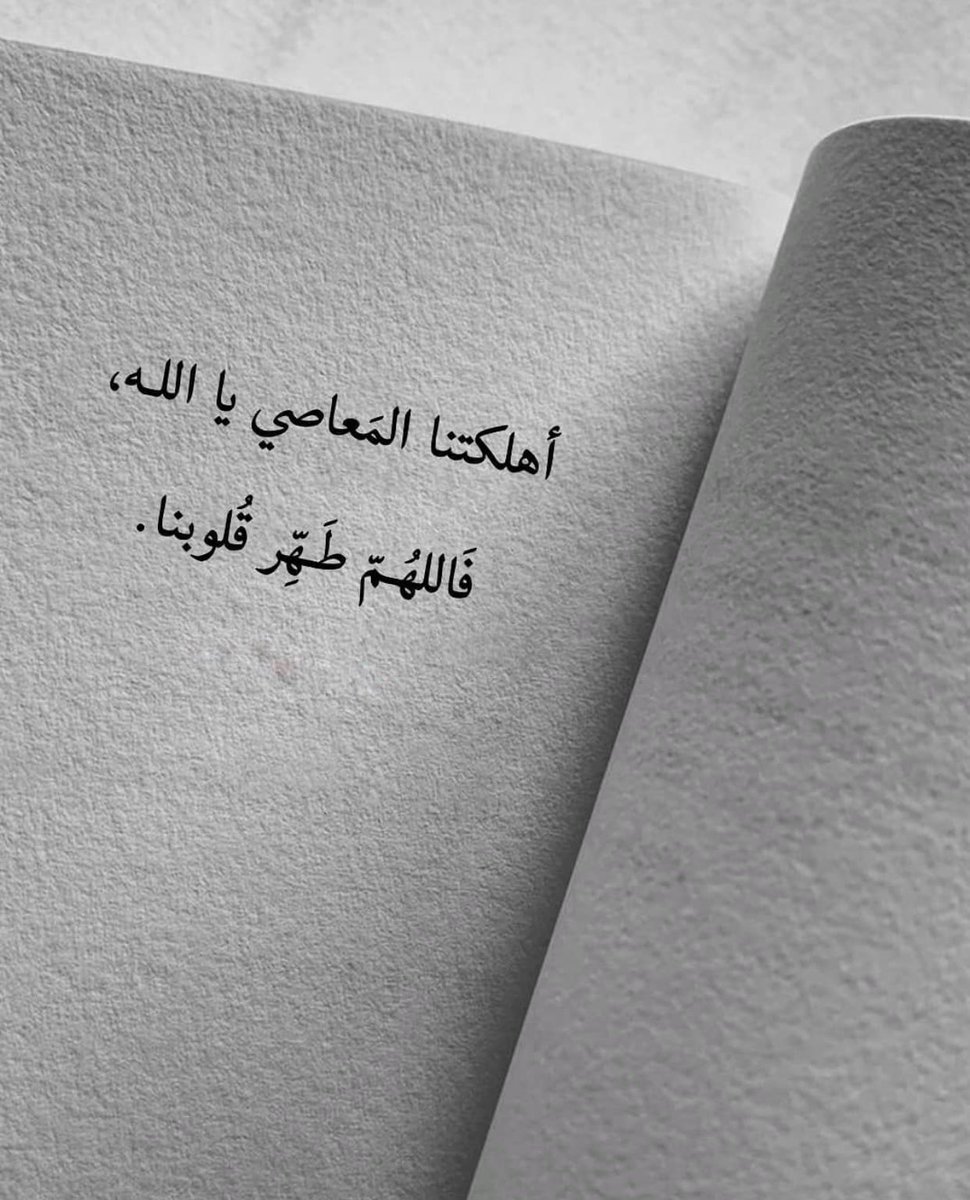 أهلكتنا المَعاصي يا اللـه،
فَاللهُـمّ طَـهِّر قُلوبنا.